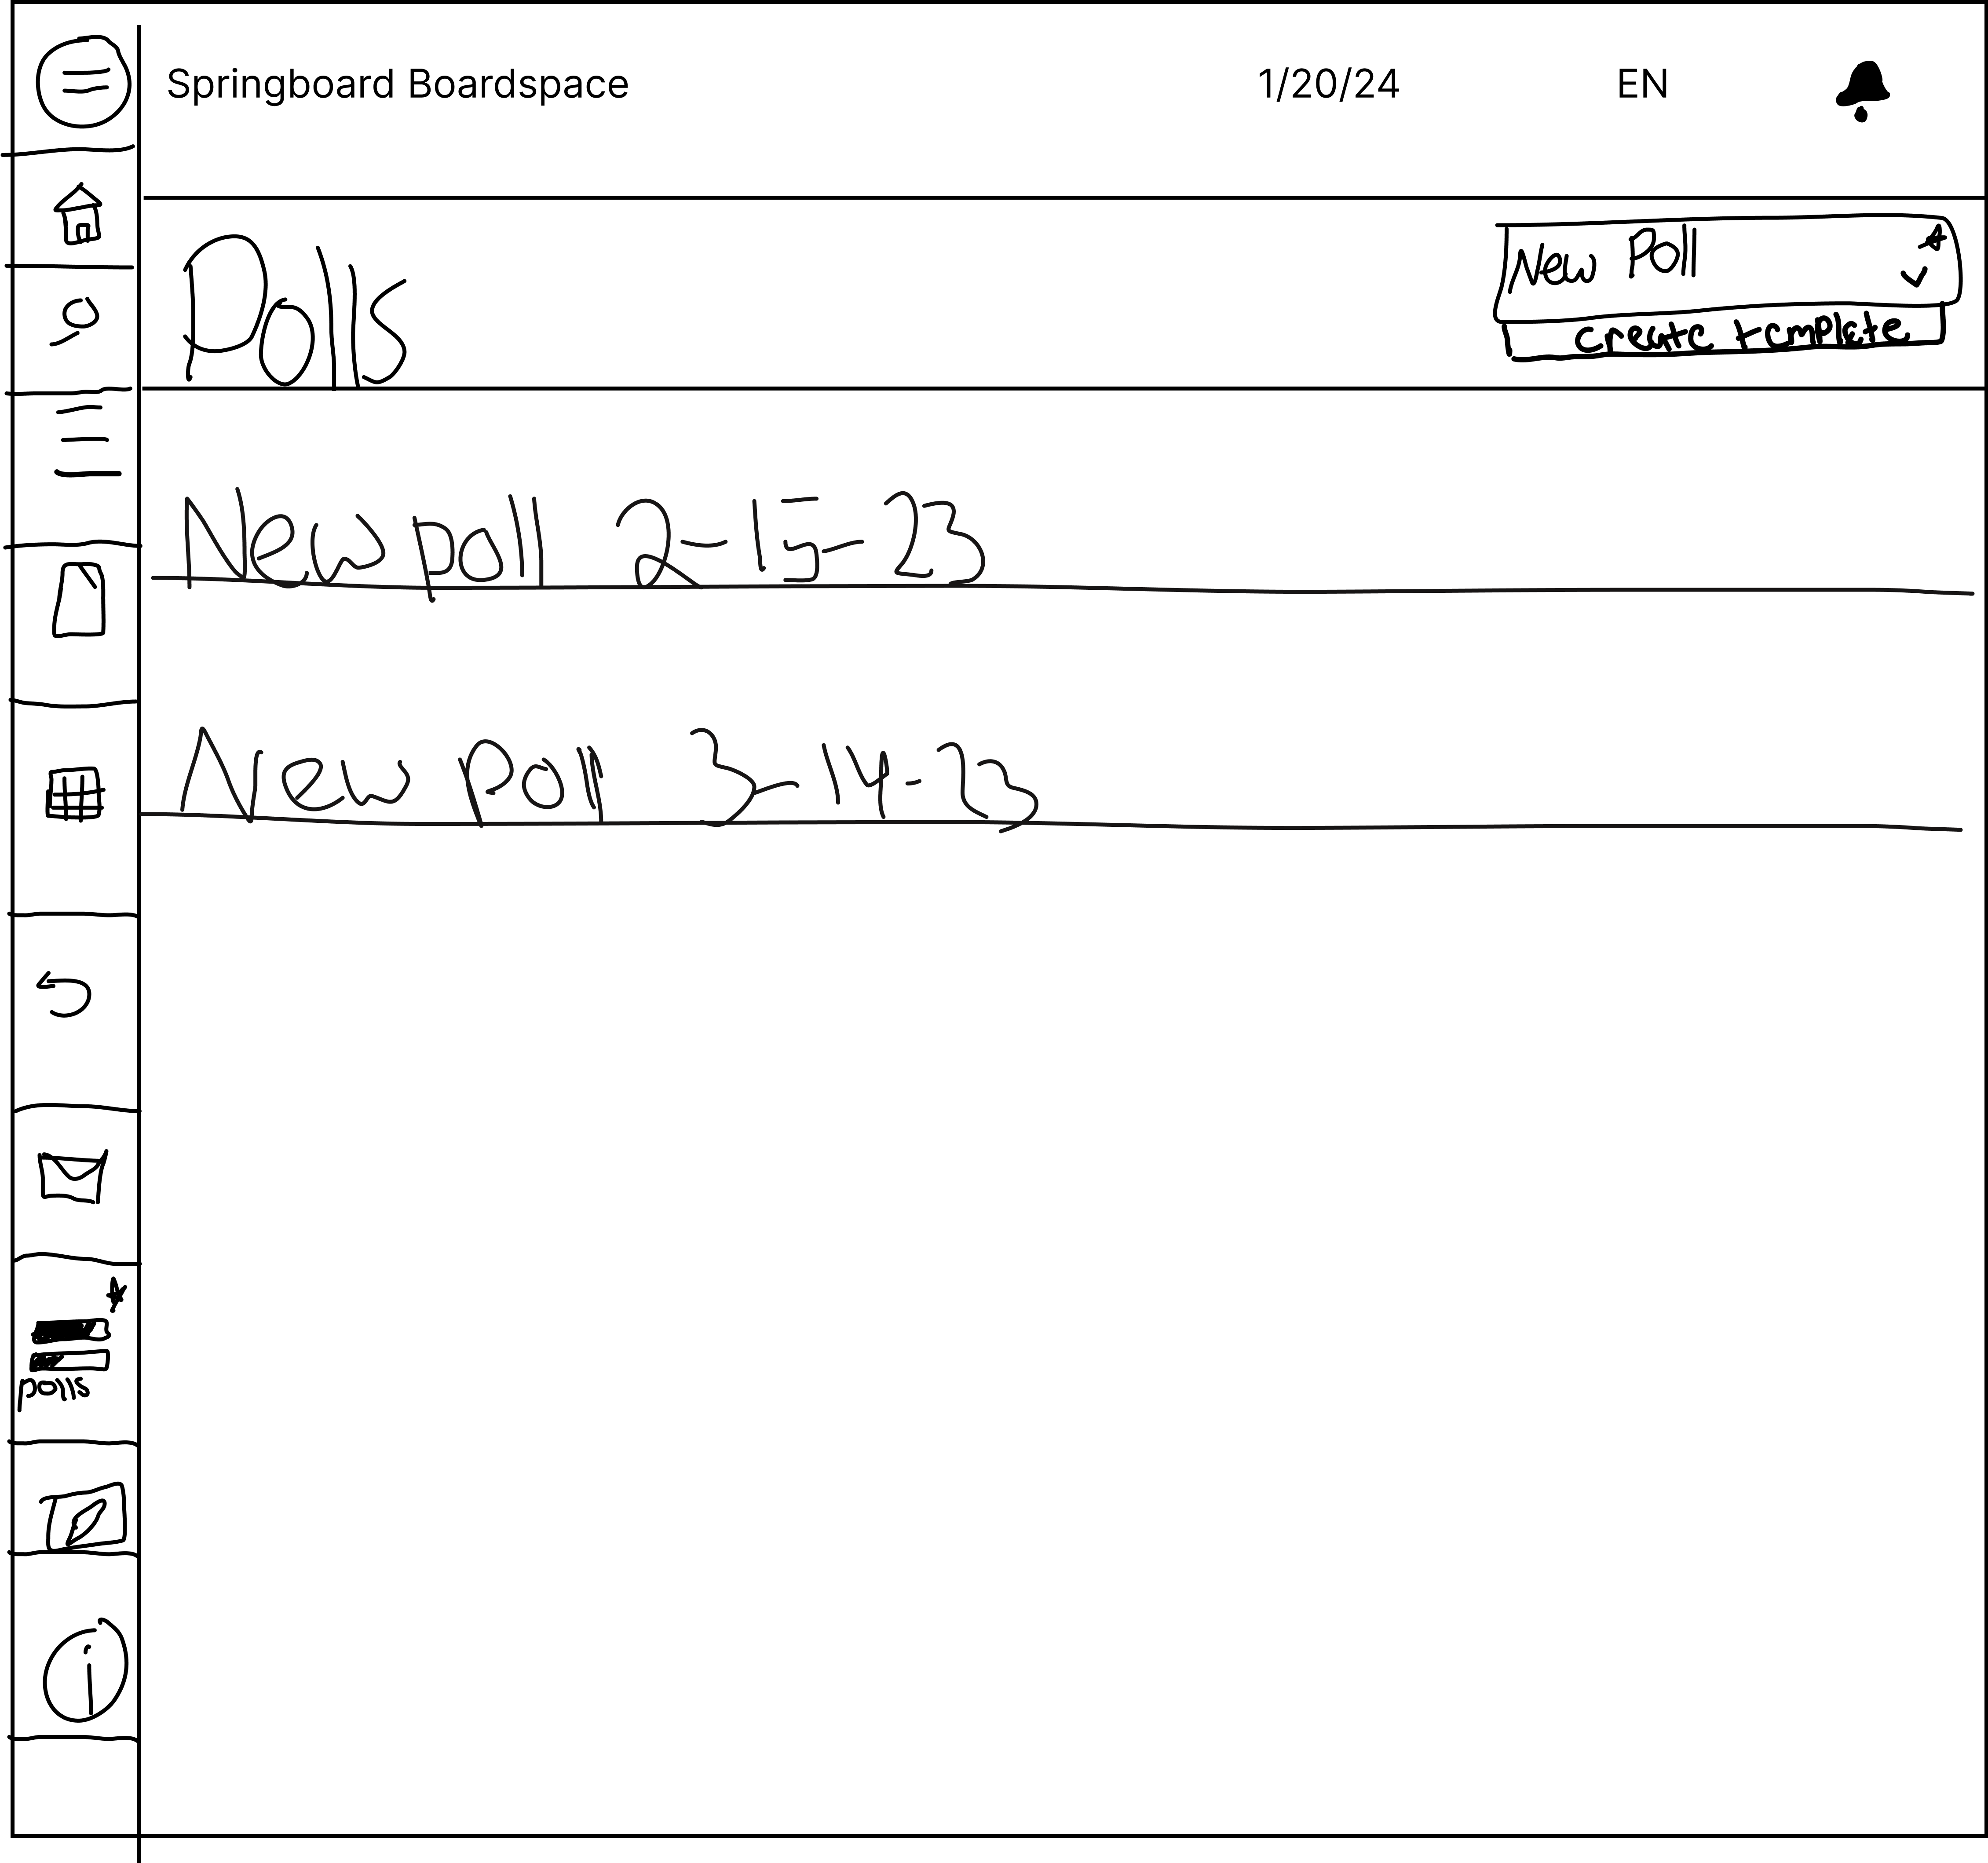 Springboard Boardspace 1/20/24 EN
Polls
New Poll
create template
New poll 2-15-23
New Poll 3-14-23
polls
i